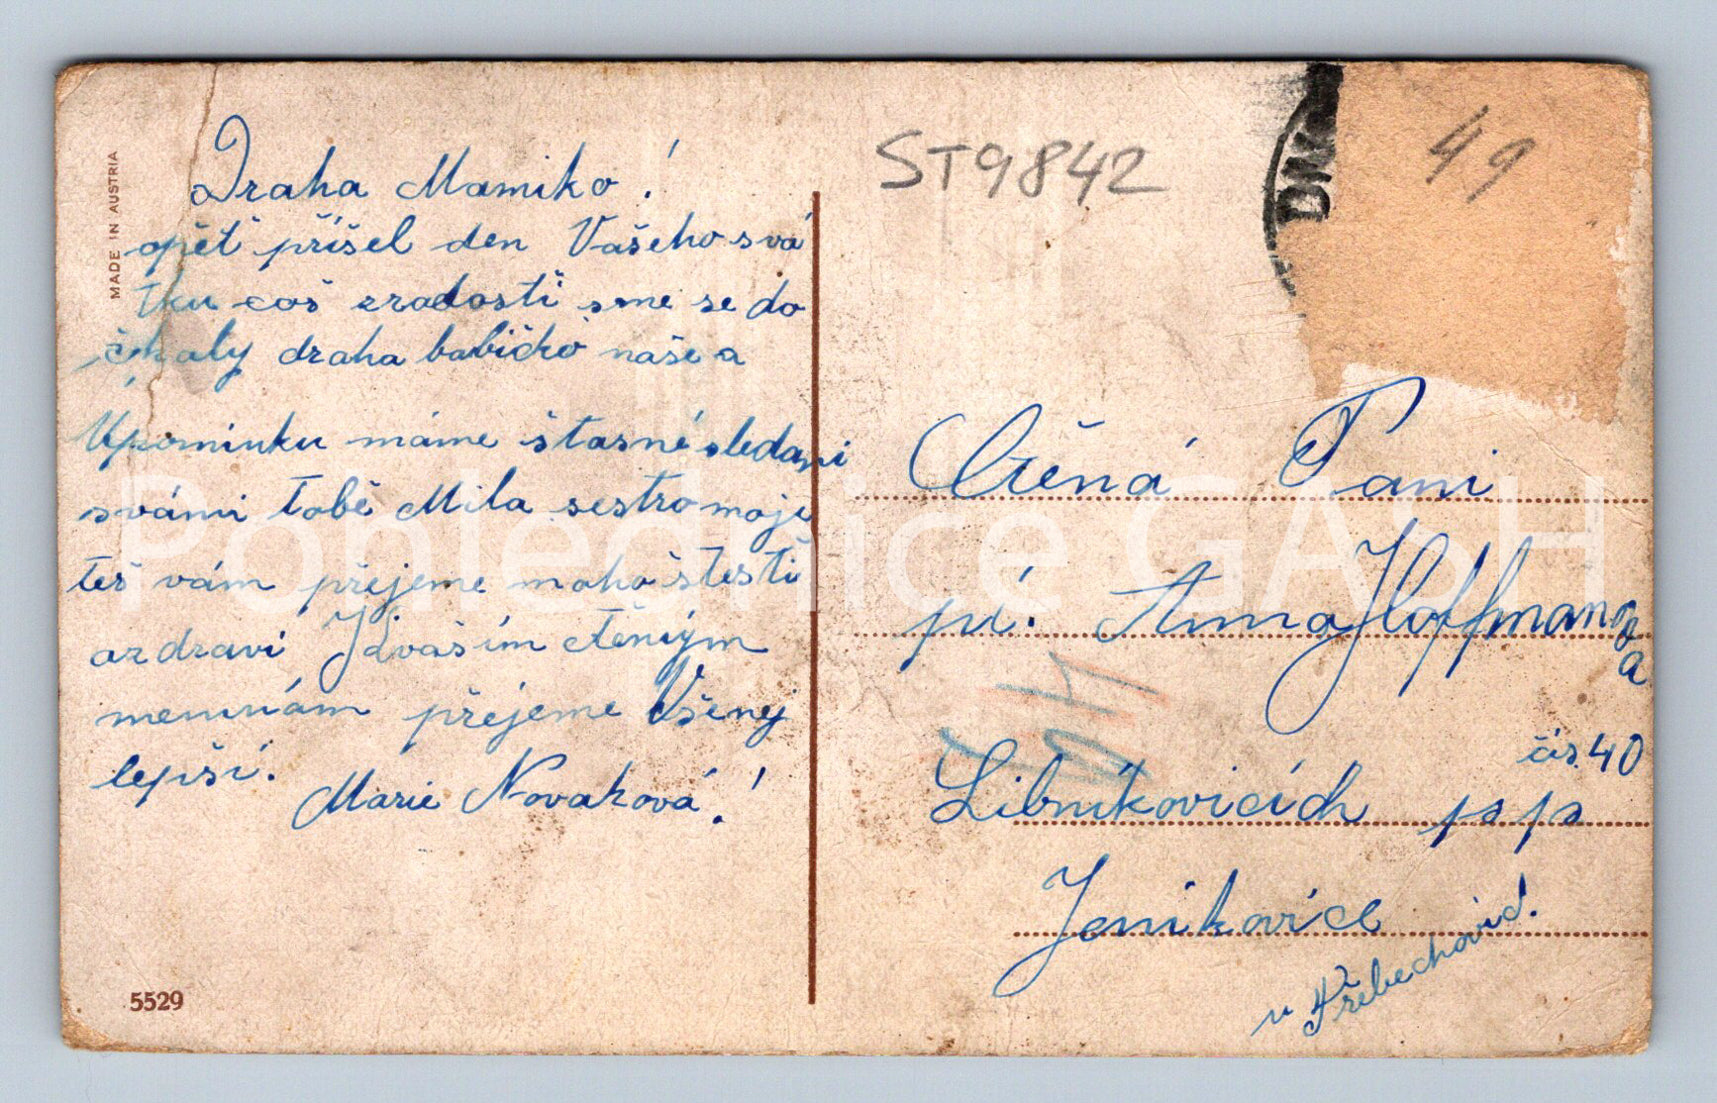 MADE IN AUSTRIA
Draha Mamiko!
opět příšel den Vašeho svá
tku což zradosti sme se do
čkaly draha babičko naše a
Upomínku máme štasné sledani
svámi tobě Mila sestro moje
teš vám přejeme moho štesti
azdravi Kvaším ctěným
meninám přejeme Všenej
lepší.
Marie Novaková!
5529
ST9842
49
Ctěná Pani
pí. Anna Hoffmanova
čís. 40
Libníkovicích ps ps
Jenikovice
u Třebechovid.
Pohlednice GASH